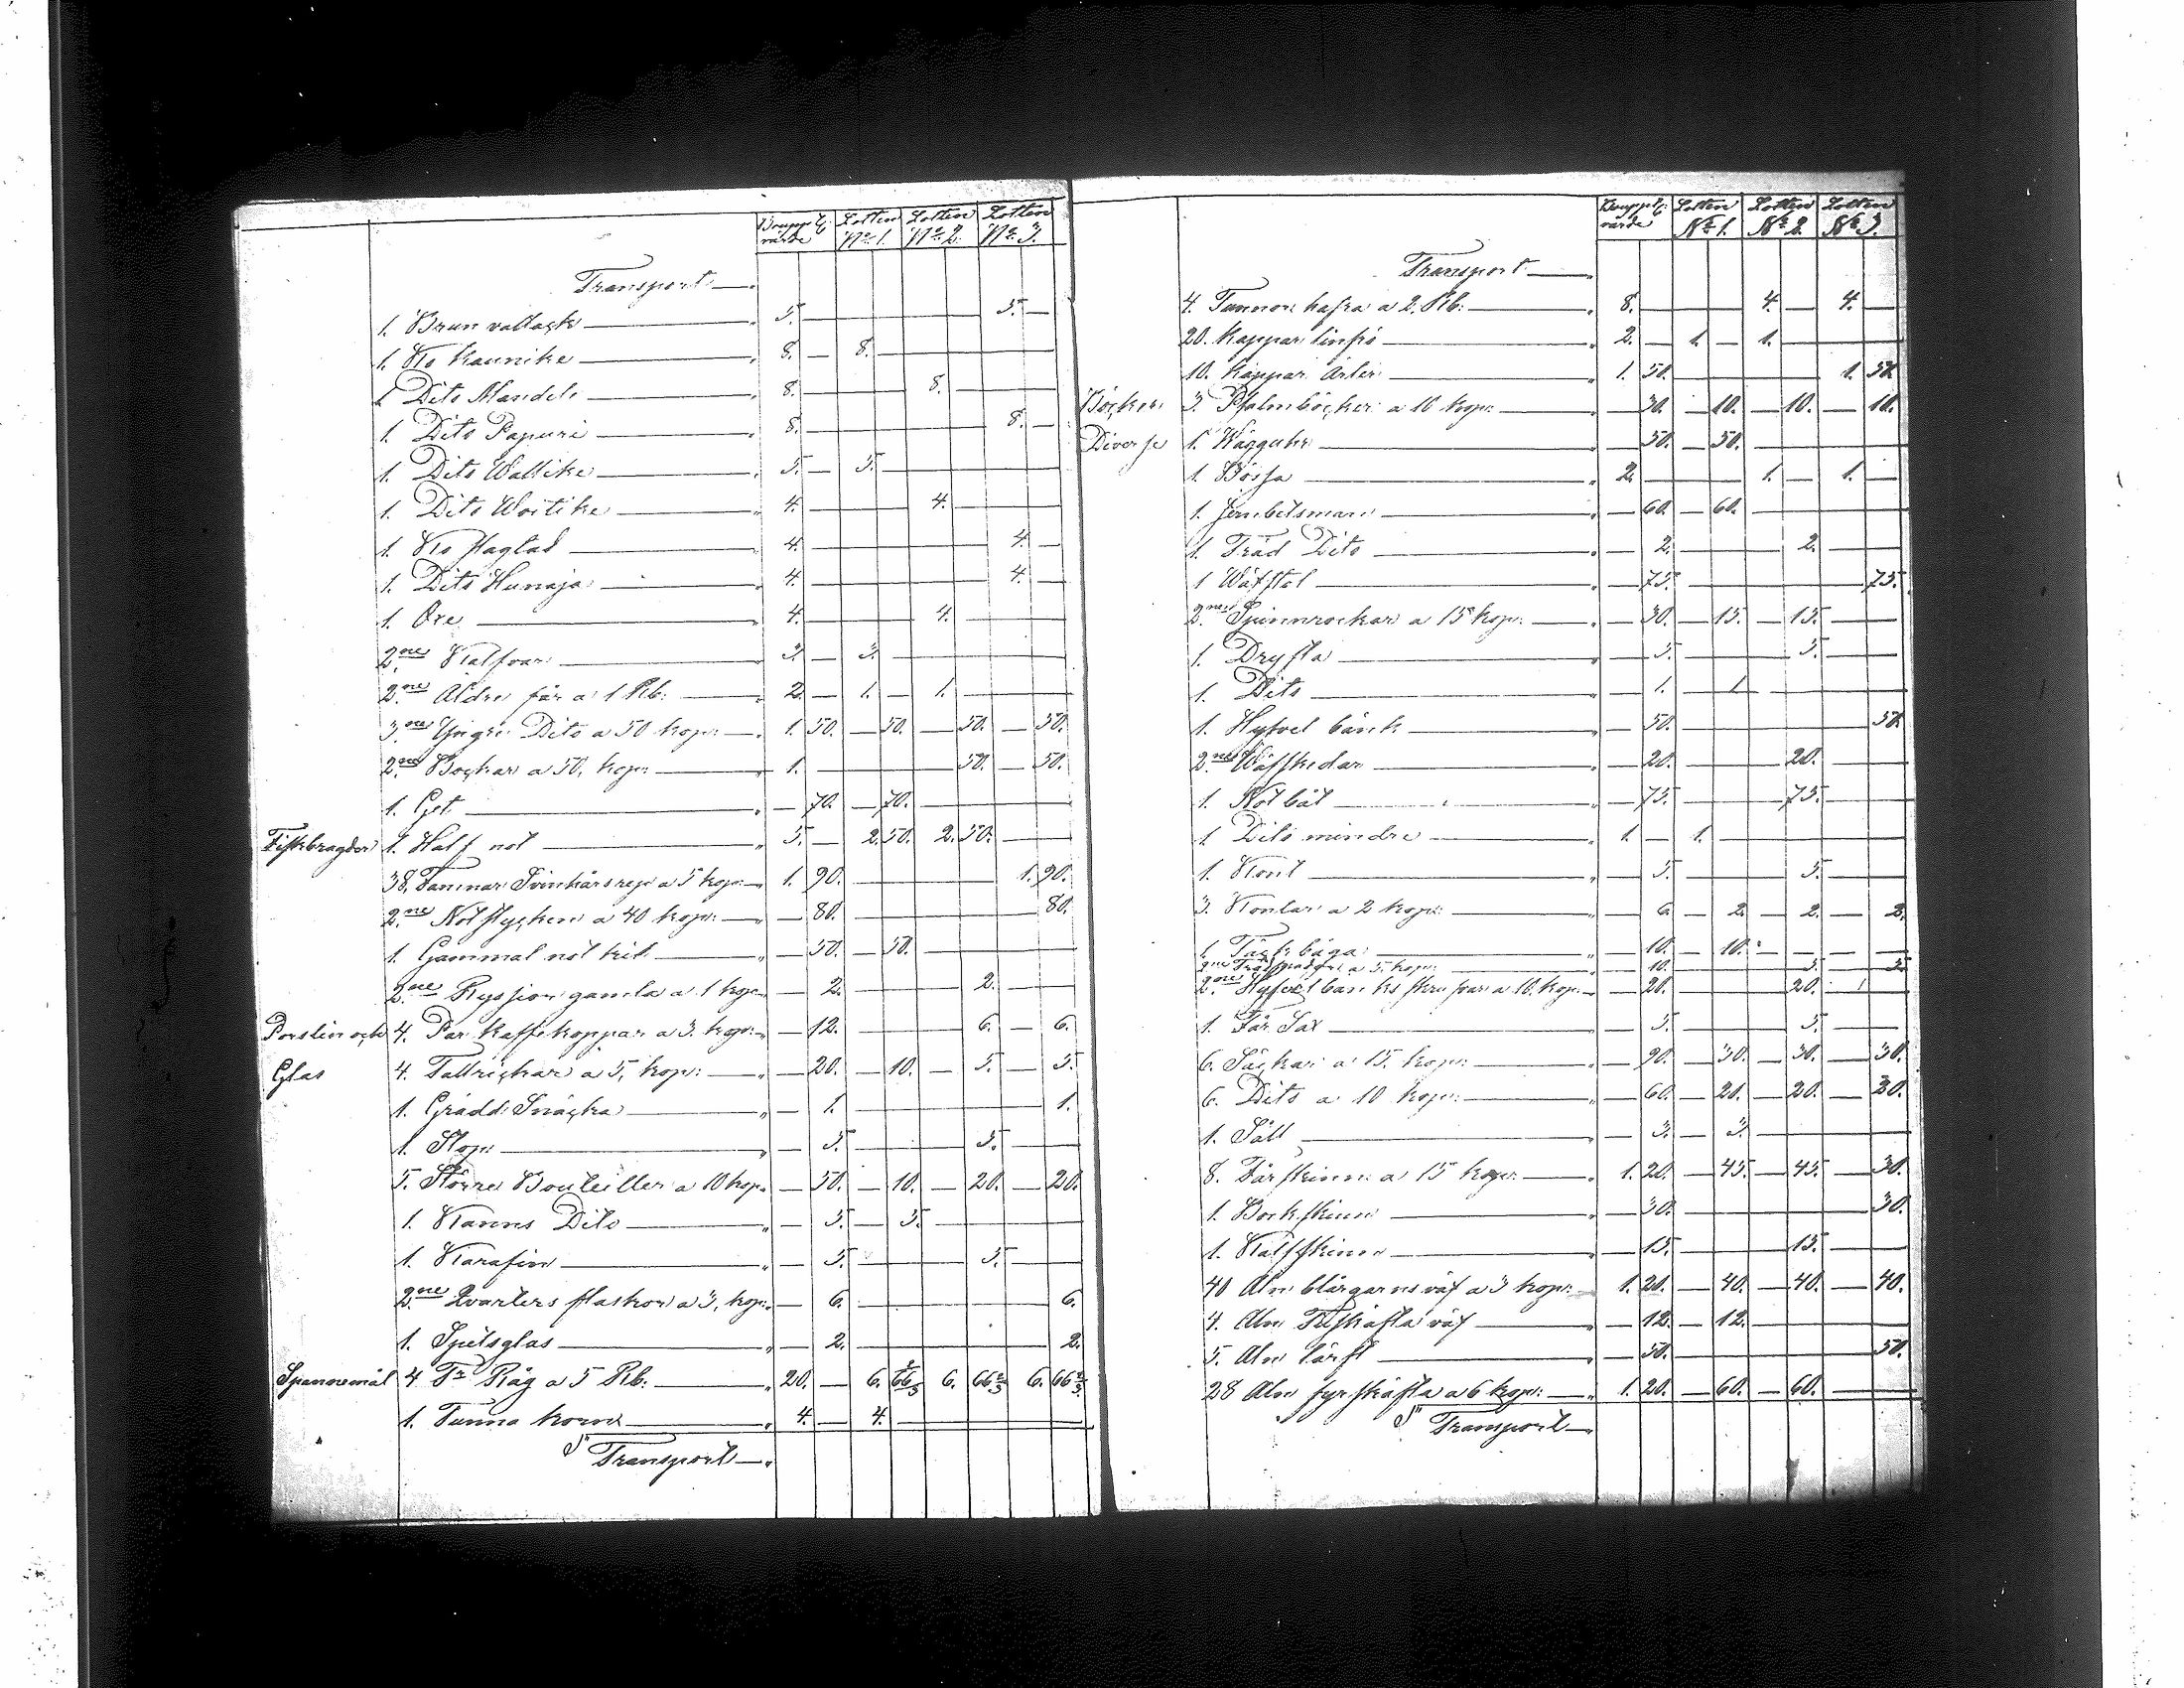 Bruppt: Lotten Lotten Lotten
värde No 1. No 2. No 3.
Transport
1. Brun vallack 5. 5.
1. Ko Kaunike 8. 8.
1. Dito Mandel 8. 8.
1. Dito Papuri 8. 8.
1. Dito Wallike 5. 5.
1. Dito Woitike 4. 4.
1. Ko Haglad 4. 4.
1. Dito Hunaja 4. 4.
1. Oxe 4. 4.
2ne Kalfvar 3. 3.
2ne Äldre får a 1 Rb: 2. 1. 1.
3ne Yngre Dito a 50 kop: 1. 50. 50. 50. 50.
2ne Bockar a 50. kop: 1. 50. 50.
1. Get 70. 70.
Fiskbragder 1. Half not 5. 2. 50. 2. 50.
38. Famnar Svinhårsrep a 5 kop: 1. 90. 1. 90.
2ne Notstycken a 40 kop: 80. 80.
1. Gammal not 50. 50.
2ne Ryssjor gamla a 1 kop: 2. 2.
Porslin och 4. Par kaffekoppar a 3. kop: 12. 6. 6.
Glas 4. Tallrickar a 5, kop: 20. 10. 5. 5.
1. Grädd Snäcka 1. 1.
1. Stop 5. 5.
5. Större Bouteiller a 10 kop: 50. 10. 20. 20.
1. Kanns Dito 5. 5.
1. Karafin 5. 5.
2ne Qvarters flaskor a 3, kop: 6. 6.
1. Spetsglas 2. 2.
Spannemål 4 Tr Råg a 5 Rb: 20. 6. 66 2/3 6. 66 2/3 6. 66 2/3
1. Tunna korn 4. 4.
Sa Transport
Bruppt: Lotten Lotten Lotten
värde No 1. No 2. No 3.
Transport
4. Tunnor hafra a 2. Rb: 8. 4. 4.
20. Kappar linfrö 2. 1. 1.
10. Kappar Ärter 1. 50. 1. 50.
Böcker 3. Psalmböcker a 10 kop: 30. 10. 10. 10.
Diverse 1. Vägguhr 50. 50.
1. Bössa 2. 1. 1.
1. Jernbetsman 60. 60.
1. Träd Dito 2. 2.
1 Wäfstol 75. 75.
2ne Spinnrockar a 15 kop: 30. 15. 15.
1. Dryfta 5. 5.
1. Dito 1. 1.
1. Hyfvel bänk 50. 50.
2ne Wäfskedar 20. 20.
1. Not båt 75. 75.
1 Dito mindre 1. 1.
1. Kont 5. 5.
3. Kontar a 2 kop: 6. 2. 2. 2.
1. båga 10. 10.
2ne a 5. kop: 10. 5. 5.
2ne Hyfvelbänks skrufvar a 10. kop: 20. 20.
1. Får Sax 5. 5.
6. Säckar a 15. kop: 90. 30. 30. 30.
6. Dito a 10 kop: 60. 20. 20. 20.
1. Såll 3. 3.
8. Fårskinn a 15 kop: 1. 20. 45. 45. 30.
1. Bockskinn 30. 30.
1. Kalfskinn 15. 15.
40 Aln blårgarnsväf a 3 kop: 1. 20. 40. 40. 40.
4. Aln Treskäfta väf 12. 12.
5. Aln lärft 50. 50.
28 Aln fyrskäfta a 6 kop: 1. 20. 60. 60.
Sa Transport